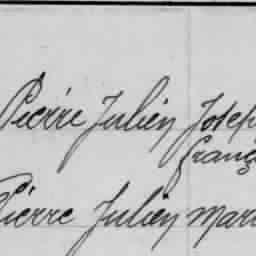 Pierre Julien Josep
franç
Pierre Julien Mari